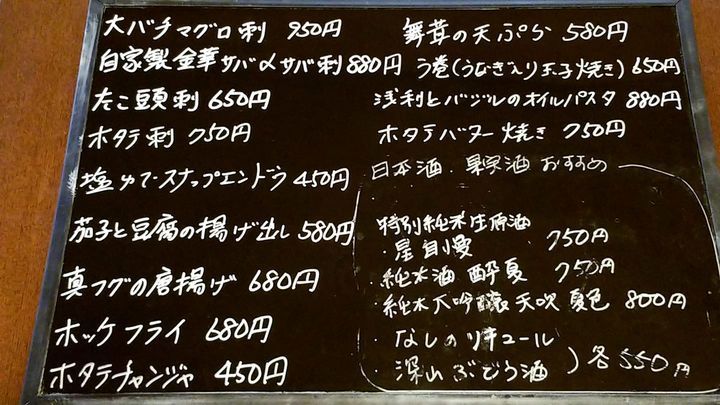 大バチマグロ刺 950円
自家製金華サバ〆サバ刺 880円
たこ頭刺 650円
ホタテ刺 750円
塩ゆでスナップエンドウ 450円
茄子と豆腐の揚げ出し 580円
真フグの唐揚げ 680円
ホッケフライ 680円
ホタテチャンジャ 450円
舞茸の天ぷら 580円
う巻(うなぎ入り玉子焼き) 650円
浅利とバジルのオイルパスタ 880円
ホタテバター焼き 750円
日本酒 果実酒 おすすめ
特別純米生原酒
・星自慢 750円
・純米酒 酔夏 750円
・純米大吟醸 天吹 夏色 800円
・なしのリキュール
・深山ぶどう酒 ) 各550円